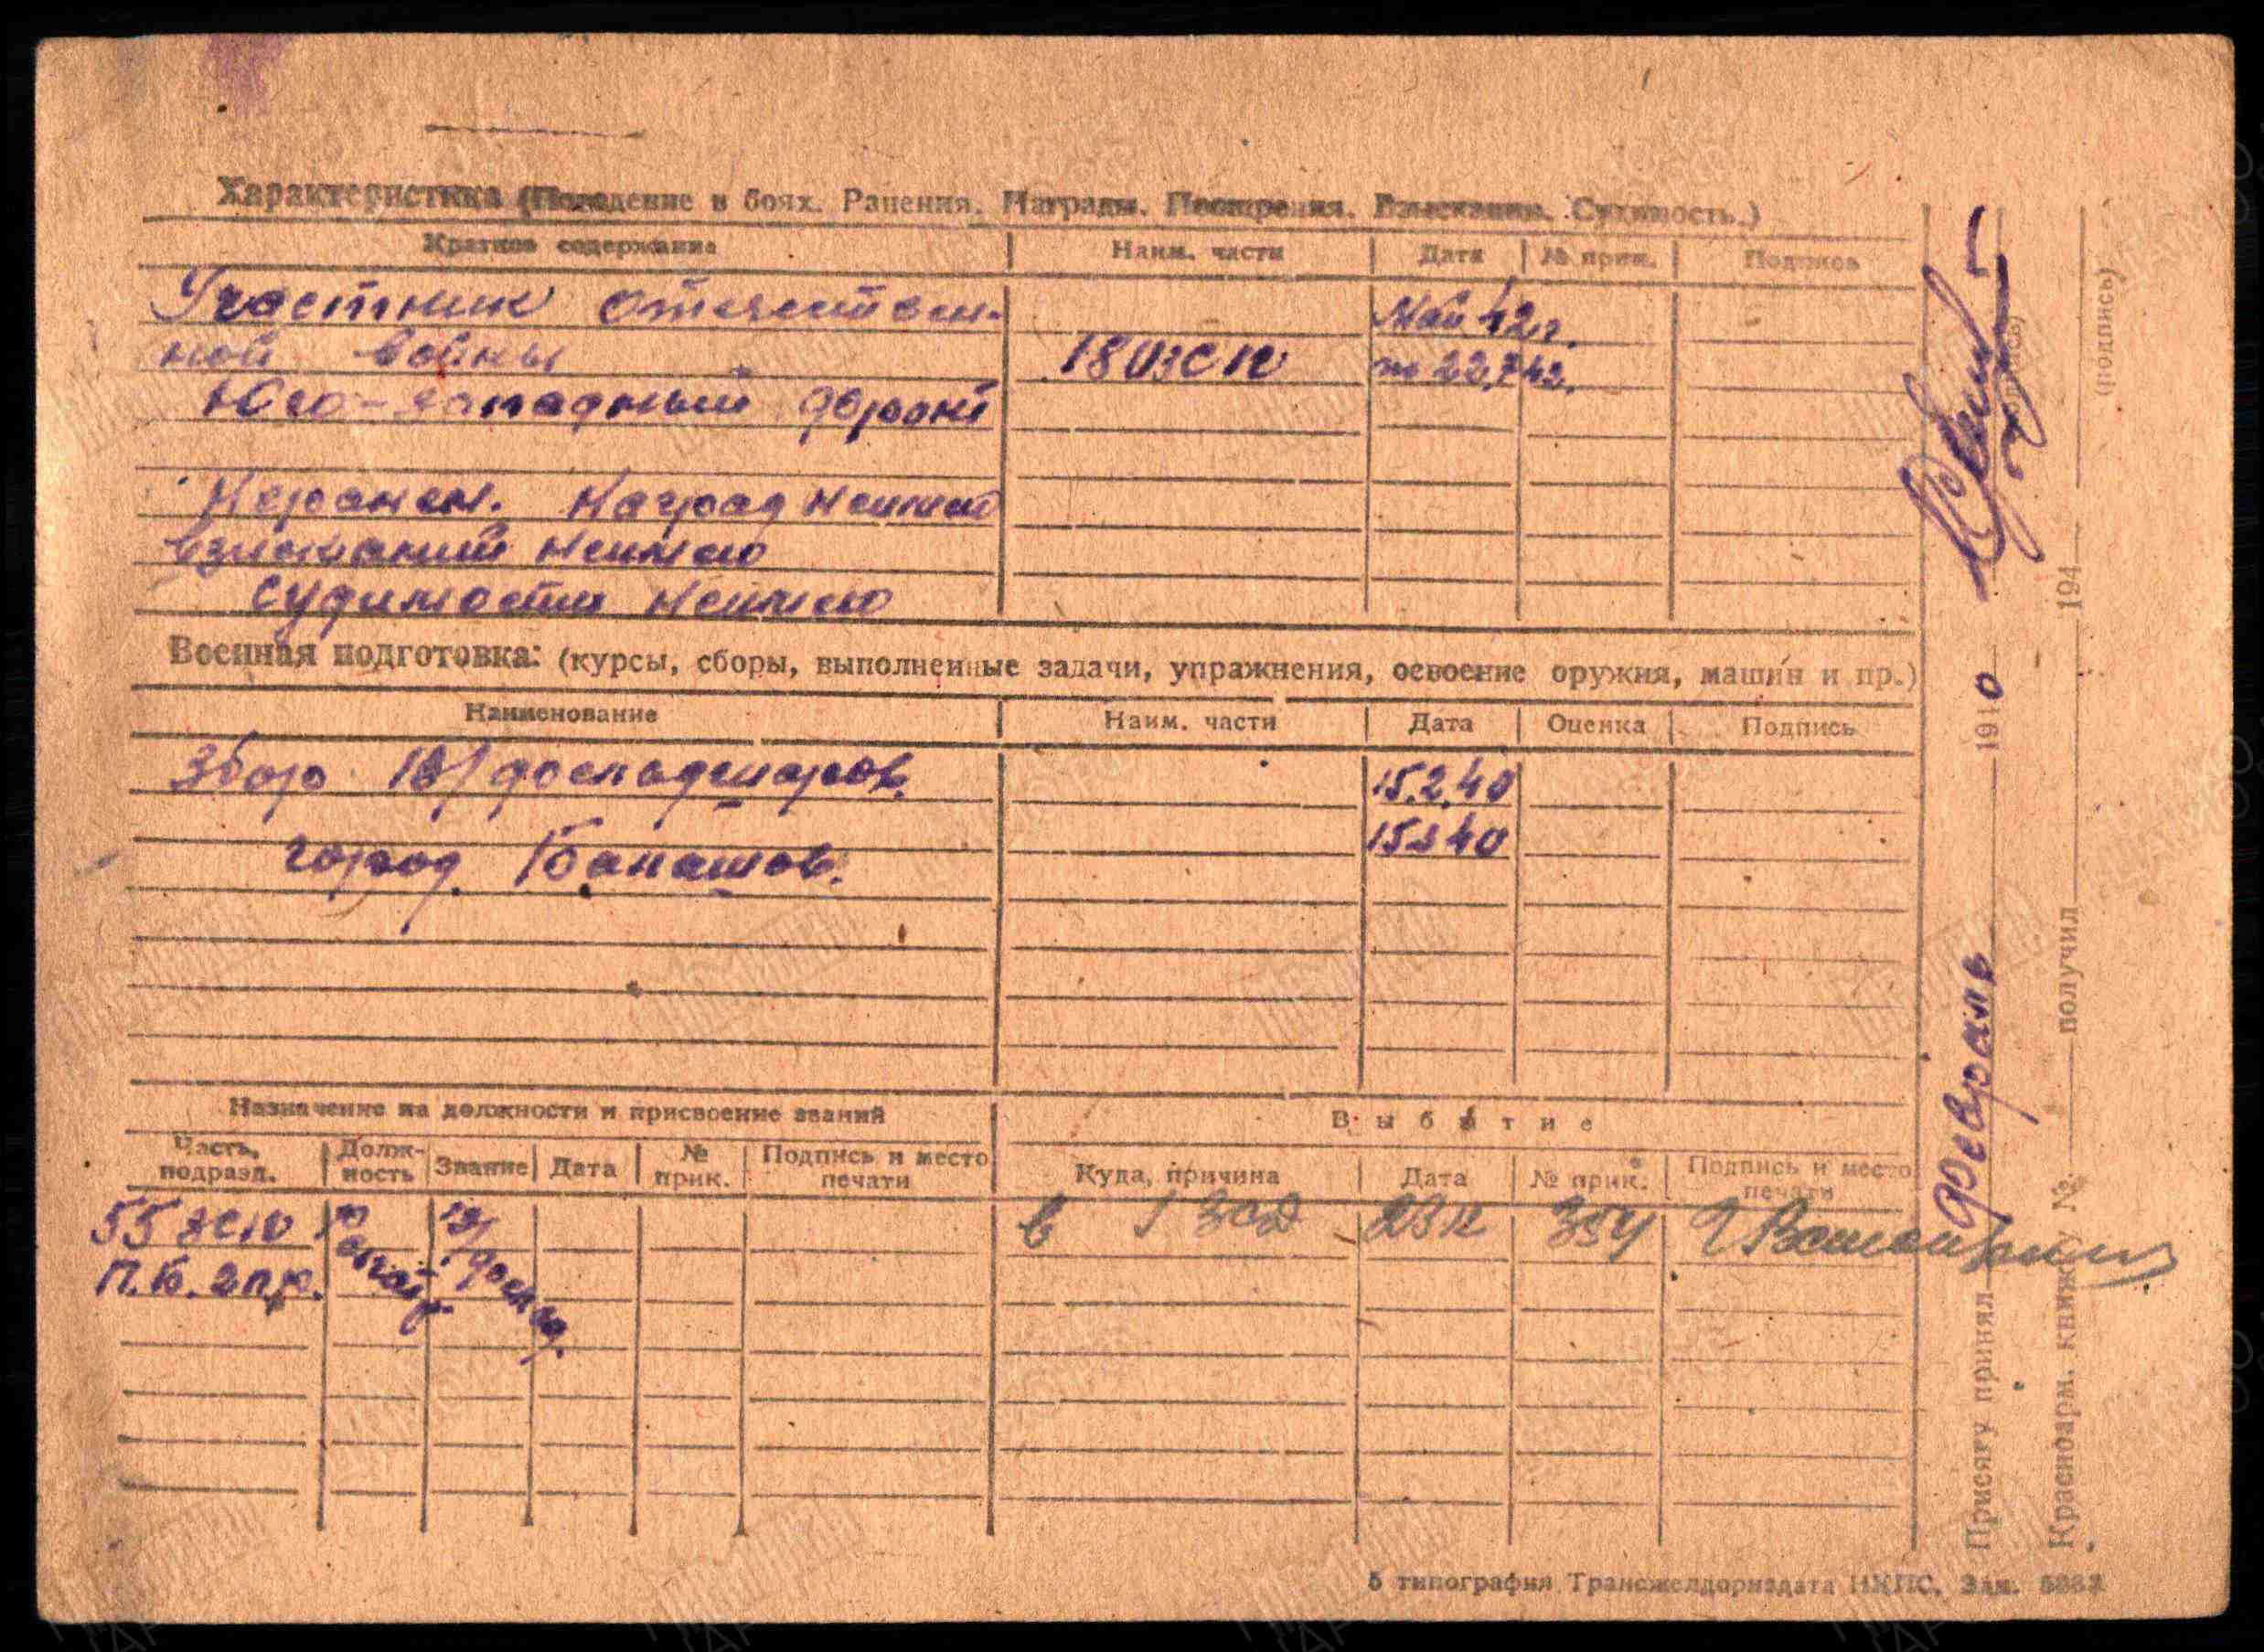 Характеристика (Поведение в боях. Ранения. Награды. Поощрения. Взыскания. Судимость.)
Краткое содержание Наим. части Дата № прик. Подпись
Участник отечествен- Май 42 г.
ной войны 180 зсп по 22.7 42.
Юго-западный фронт
Неранен. Наград неимею
взысканий неимею
судимости неимею
Военная подготовка: (курсы, сборы, выполненные задачи, упражнения, освоение оружия, машин и пр.)
Наименование Наим. части Дата Оценка Подпись
Збор 15.2.40
город Балашов. 40
Назначение на должности и присвоение званий
Часть, подразд. Долж-ность Звание Дата № прик. Подпись и место печати
55 зсп
П.Б. 2 п.р.
Выбытие
Куда, причина Дата № прик. Подпись и место печати
в 1 зсд 354
Присягу принял февраль 1910
(подпись)
Красноарм. книжку № получил 194
(подпись)
5 типография Трансжелдориздата НКПС. Зак.